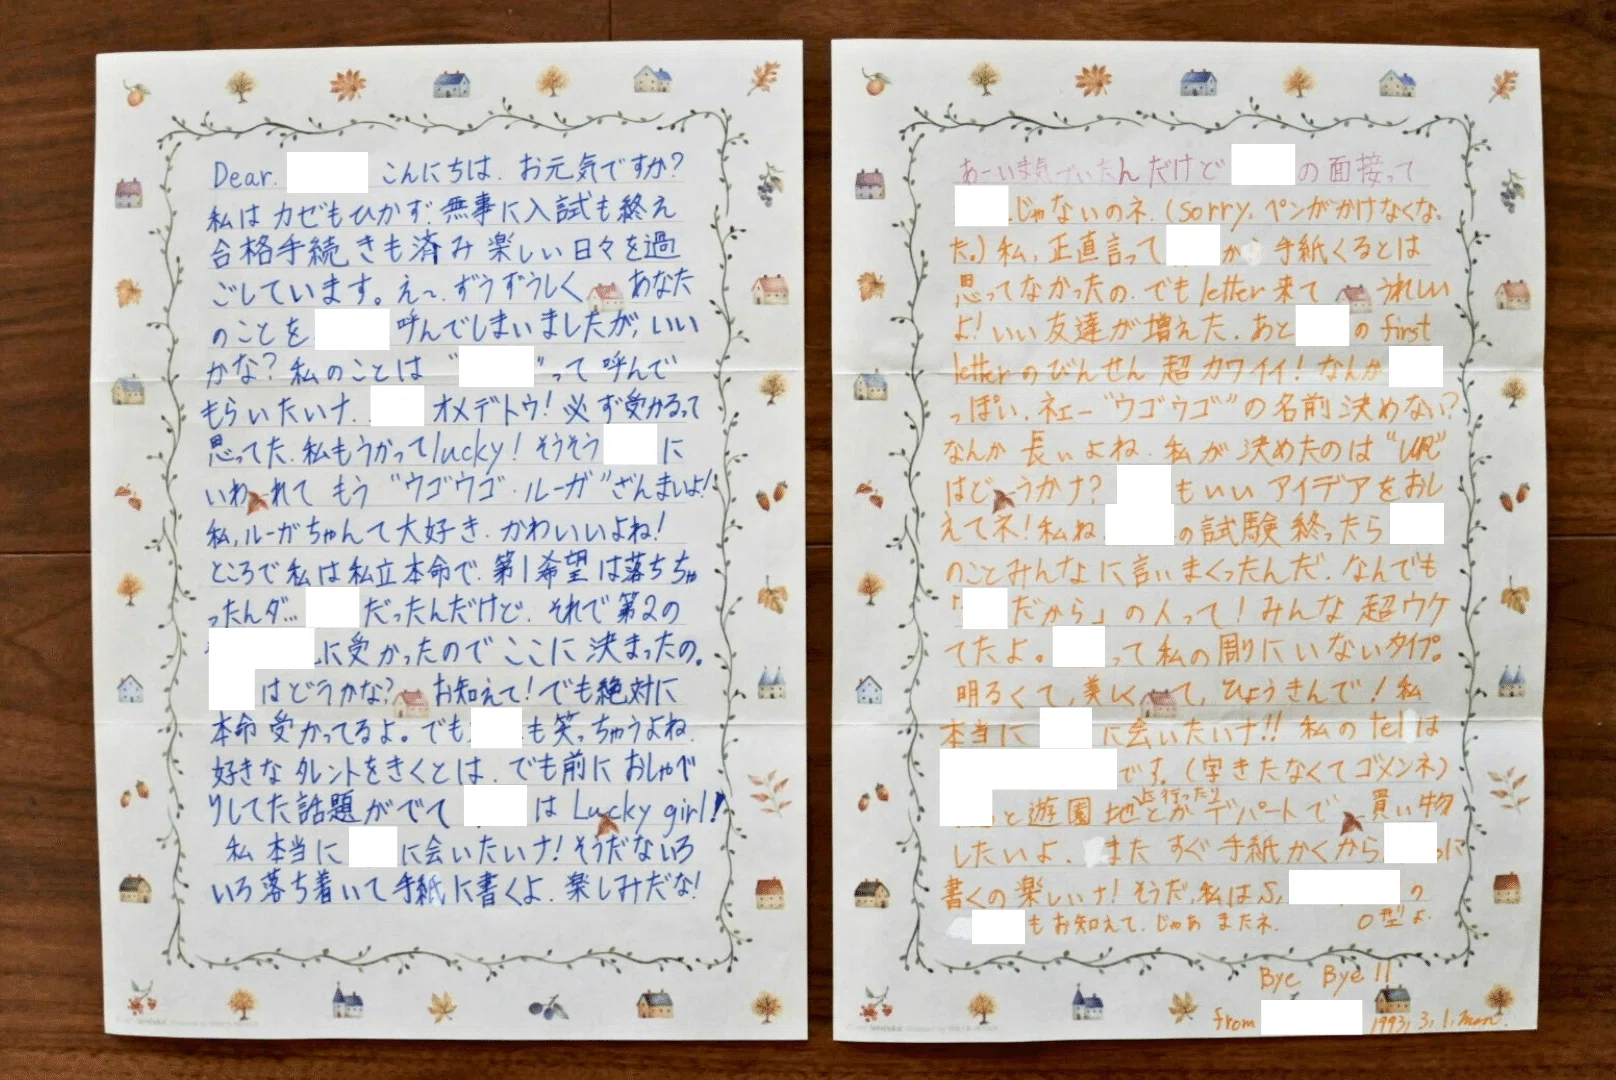 Dear. こんにちは. お元気ですか?
私は カゼもひかず. 無事に入試も終え
合格手続きも済み 楽しい日々を過
ごしています。えー、ずうずうしく あなた
のことを 呼んでしまいましたが, いい
かな? 私のことは “ ”って 呼んで
もらいたいナ. オメデトウ! 必ず受かるって
思ってた. 私もうかってlucky! そうそう に
いわれて もう “ウゴウゴ・ルーガ”ざんまいよ!
私, ルーガちゃんて大好き. かわいいよね!
ところで私は私立本命で. 第1希望は落ちちゃ
ったんダ… だったんだけど. それで第2の
に受かったので ここに 決まったの。
はどうかな? お知えて! でも絶対に
本命 受かってるよ。でも も笑っちゃうよね.
好きな タレントをきくとは. でも前に おしゃべ
りしてた話題がでて は Lucky girl!
私 本当に に会いたいナ! そうだないろ
いろ落ち着いて手紙に書くよ. 楽しみだな!
あーいま気づいたんだけど の面接って
じゃないのネ. (sorry. ペンがかけなくな.
た。) 私, 正直言って か 手紙くるとは
思ってなかったの. でも letter 来て うれしい
よ! いい 友達が 増えた. あと の first
letter のびんせん 超 カワイイ! なんか
っぽい. ネェー “ウゴウゴ”の名前 決めない?
なんか 長いよね. 私が 決めたのは “UR”
はどうかナ? もいい アイデアをおし
えてネ! 私ね. の試験 終ったら
のことみんなに言いまくったんだ. なんでも
「 だから」の人って! みんな 超ウケ
てたよ。 って私の周りにいないタイプ。
明るくて, 美しくて, ひょうきんで! 私
本当に に会いたいナ!! 私の telは
です. (字きたなくてゴメンネ)
と遊園地に行ったりとかデパートで 買い物
したいよ. また すぐ 手紙かくから に
書くの楽しいナ! そうだ, 私は S, の
もお知えて. じゃあ またネ. O型よ.
Bye Bye!!
from 1993, 3, 1, mon.